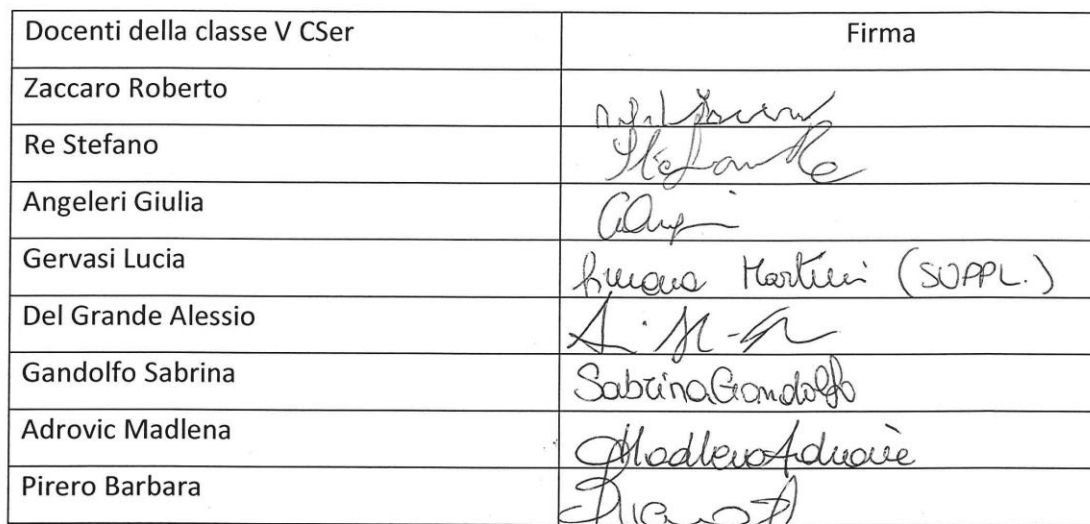 Docenti della classe V CSer Firma
Zaccaro Roberto
Re Stefano Stefano Re
Angeleri Giulia
Gervasi Lucia Simona Martini (SUPPL.)
Del Grande Alessio
Gandolfo Sabrina Sabrina Gandolfo
Adrovic Madlena Madlena Adrovic
Pirero Barbara